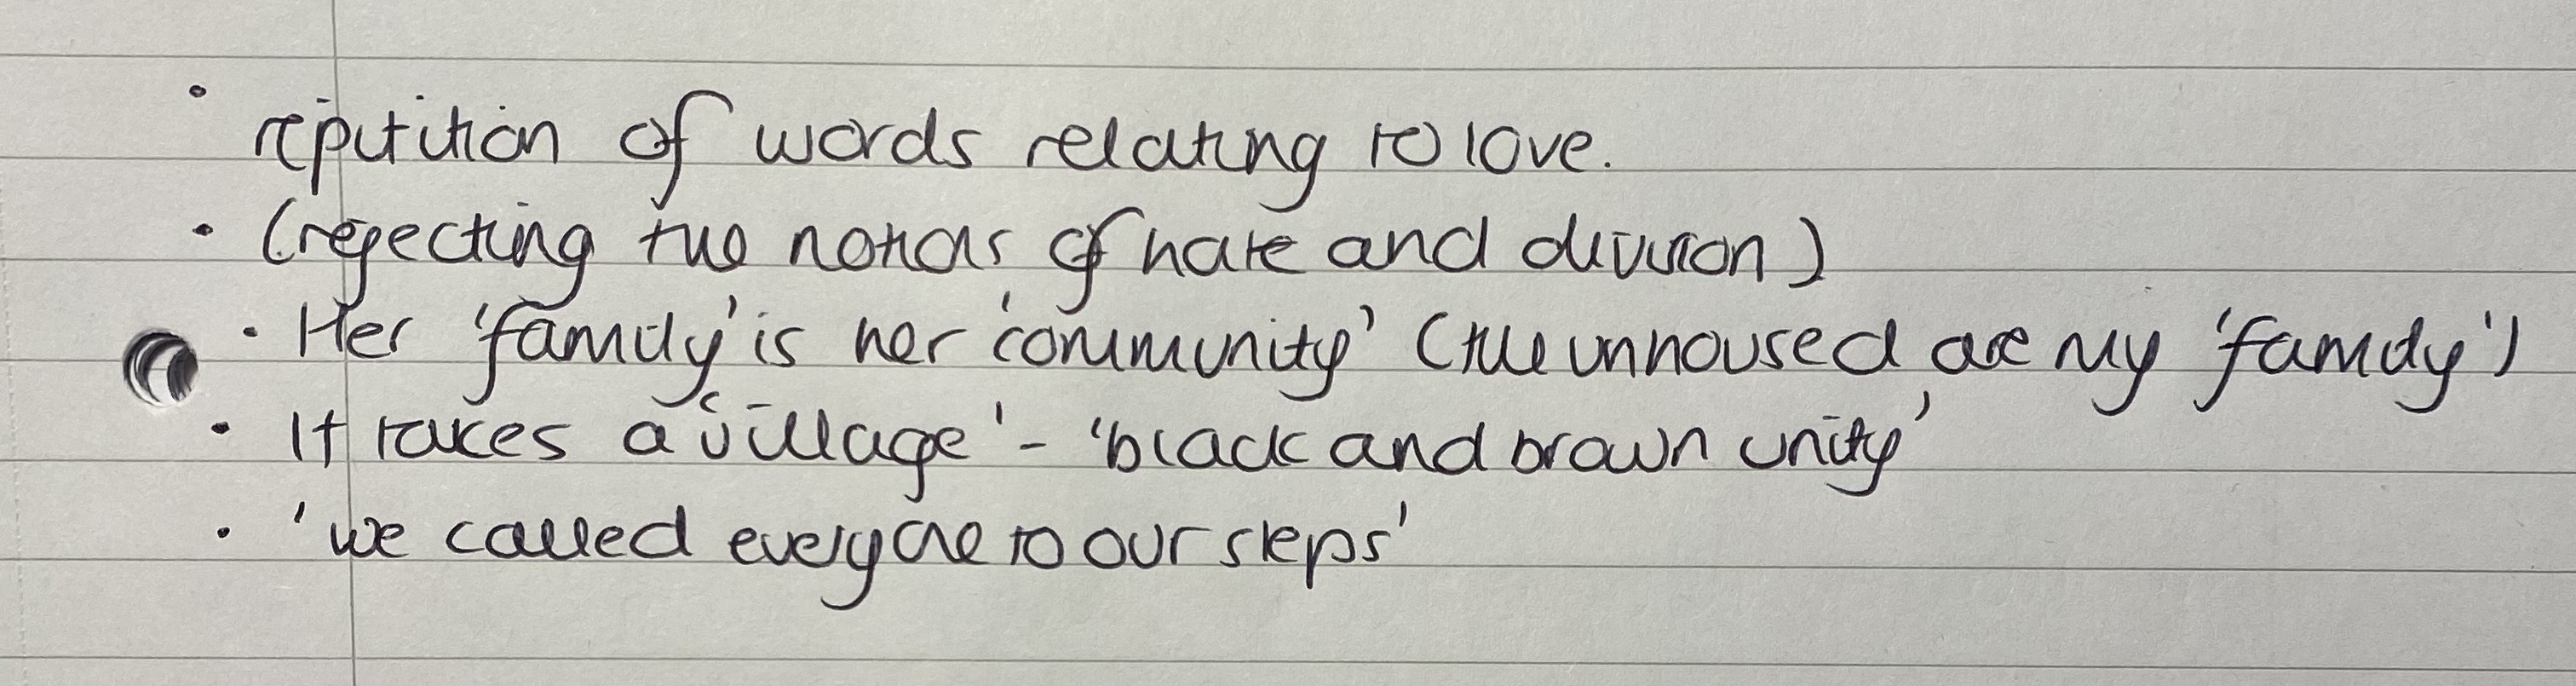 • repitition of words relating to love.
• (rejecting the notions of hate and division)
• Her 'family' is her 'community' (the unhoused are my 'family')
• It takes a 'village' - 'black and brown unity'
• 'we called everyone to our steps'